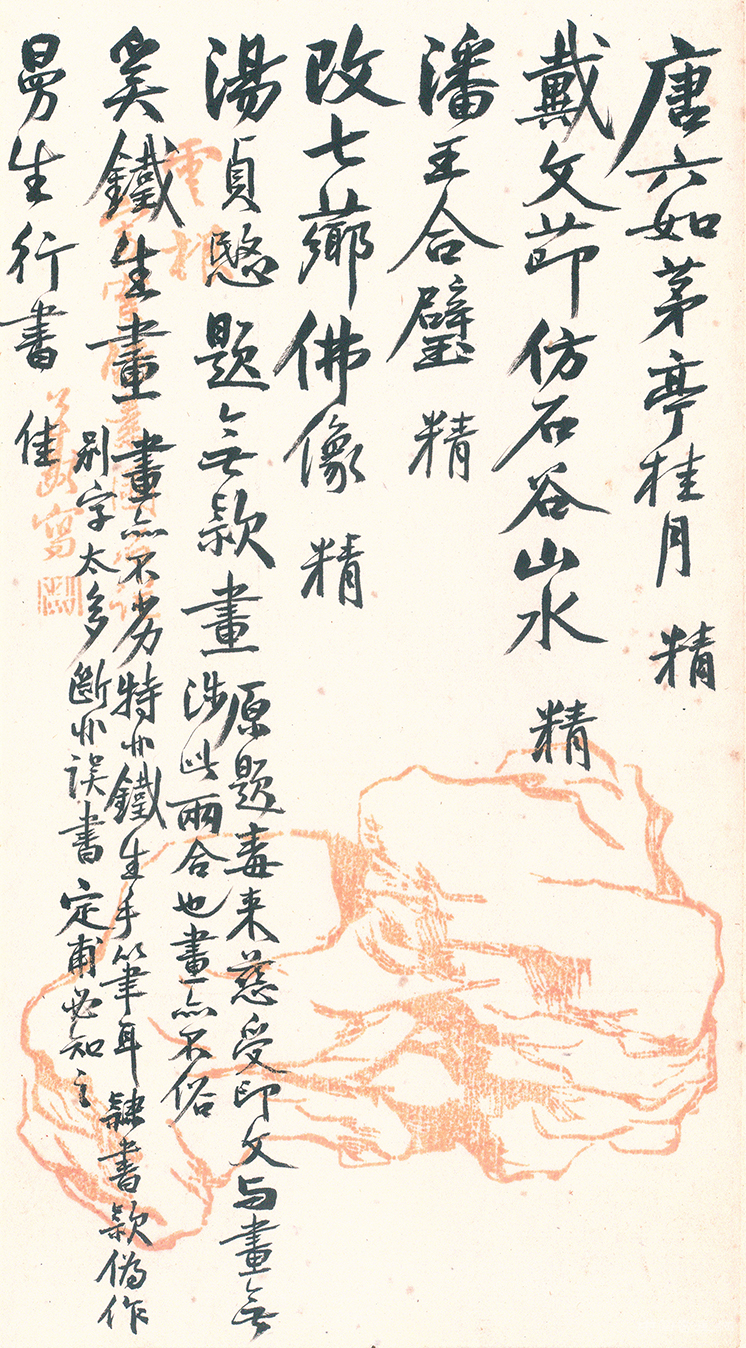 唐六如茅亭桂月 精
戴文節仿石谷山水 精
潘王合璧 精
改七薌佛像 精
湯貞愍題無款畫
原題毒来慈受印文与畫無
涉此兩合也畫亦不俗
奚鐵生畫
畫亦不劣特非鐵生手筆耳 隸書款偽作
別字太多斷非誤書 定甫必知之
曼生行書 佳
雲根